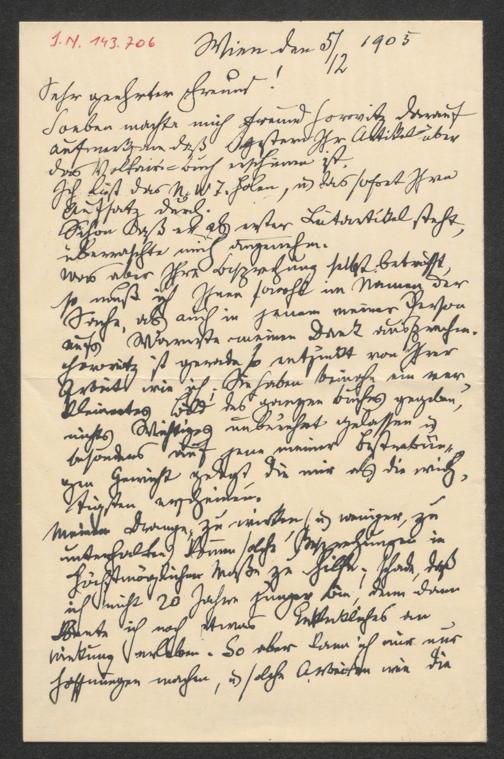 J.N. 143.706
Wien den 5/12 1905
Sehr geehrter Freund!
Soeben machte mich Freund Horovitz darauf
aufmerksam daß gestern Ihr Artikel über
das Voltaire-Buch erschienen ist.
Ich ließ das N.W.T. holen, u las sofort Ihren
Aufsatz durch.
Schon daß er als erster Leitartikel steht,
überraschte mich angenehm.
Was aber Ihre Besprechung selbst betrifft,
so muß ich Ihnen sowohl im Namen der
Sache, als auch in jenem meiner Person
aufs Wärmste meinen Dank aussprechen.
Horovitz ist gerade so entzückt von Ihrer
Arbeit wie ich! Sie haben beinahe ein ver-
kleinertes Bild des ganzen Buches gegeben,
nichts Wichtiges unberührt gelassen u
besonders auf jene meiner Bestrebun-
gen Gewicht gelegt, die mir als die wich-
tigsten erscheinen.
Meinem Drange, zu wirken, u weniger, zu
unterhalten, kommen solche Besprechungen in
höchstmöglicher Maße zu Hilfe; schade, daß
ich nicht 20 Jahre jünger bin, denn dann
könnte ich noch etwas an
Wirkung erleben. So aber kann ich mir nur
Hoffnungen machen, u solche Arbeiten wie die